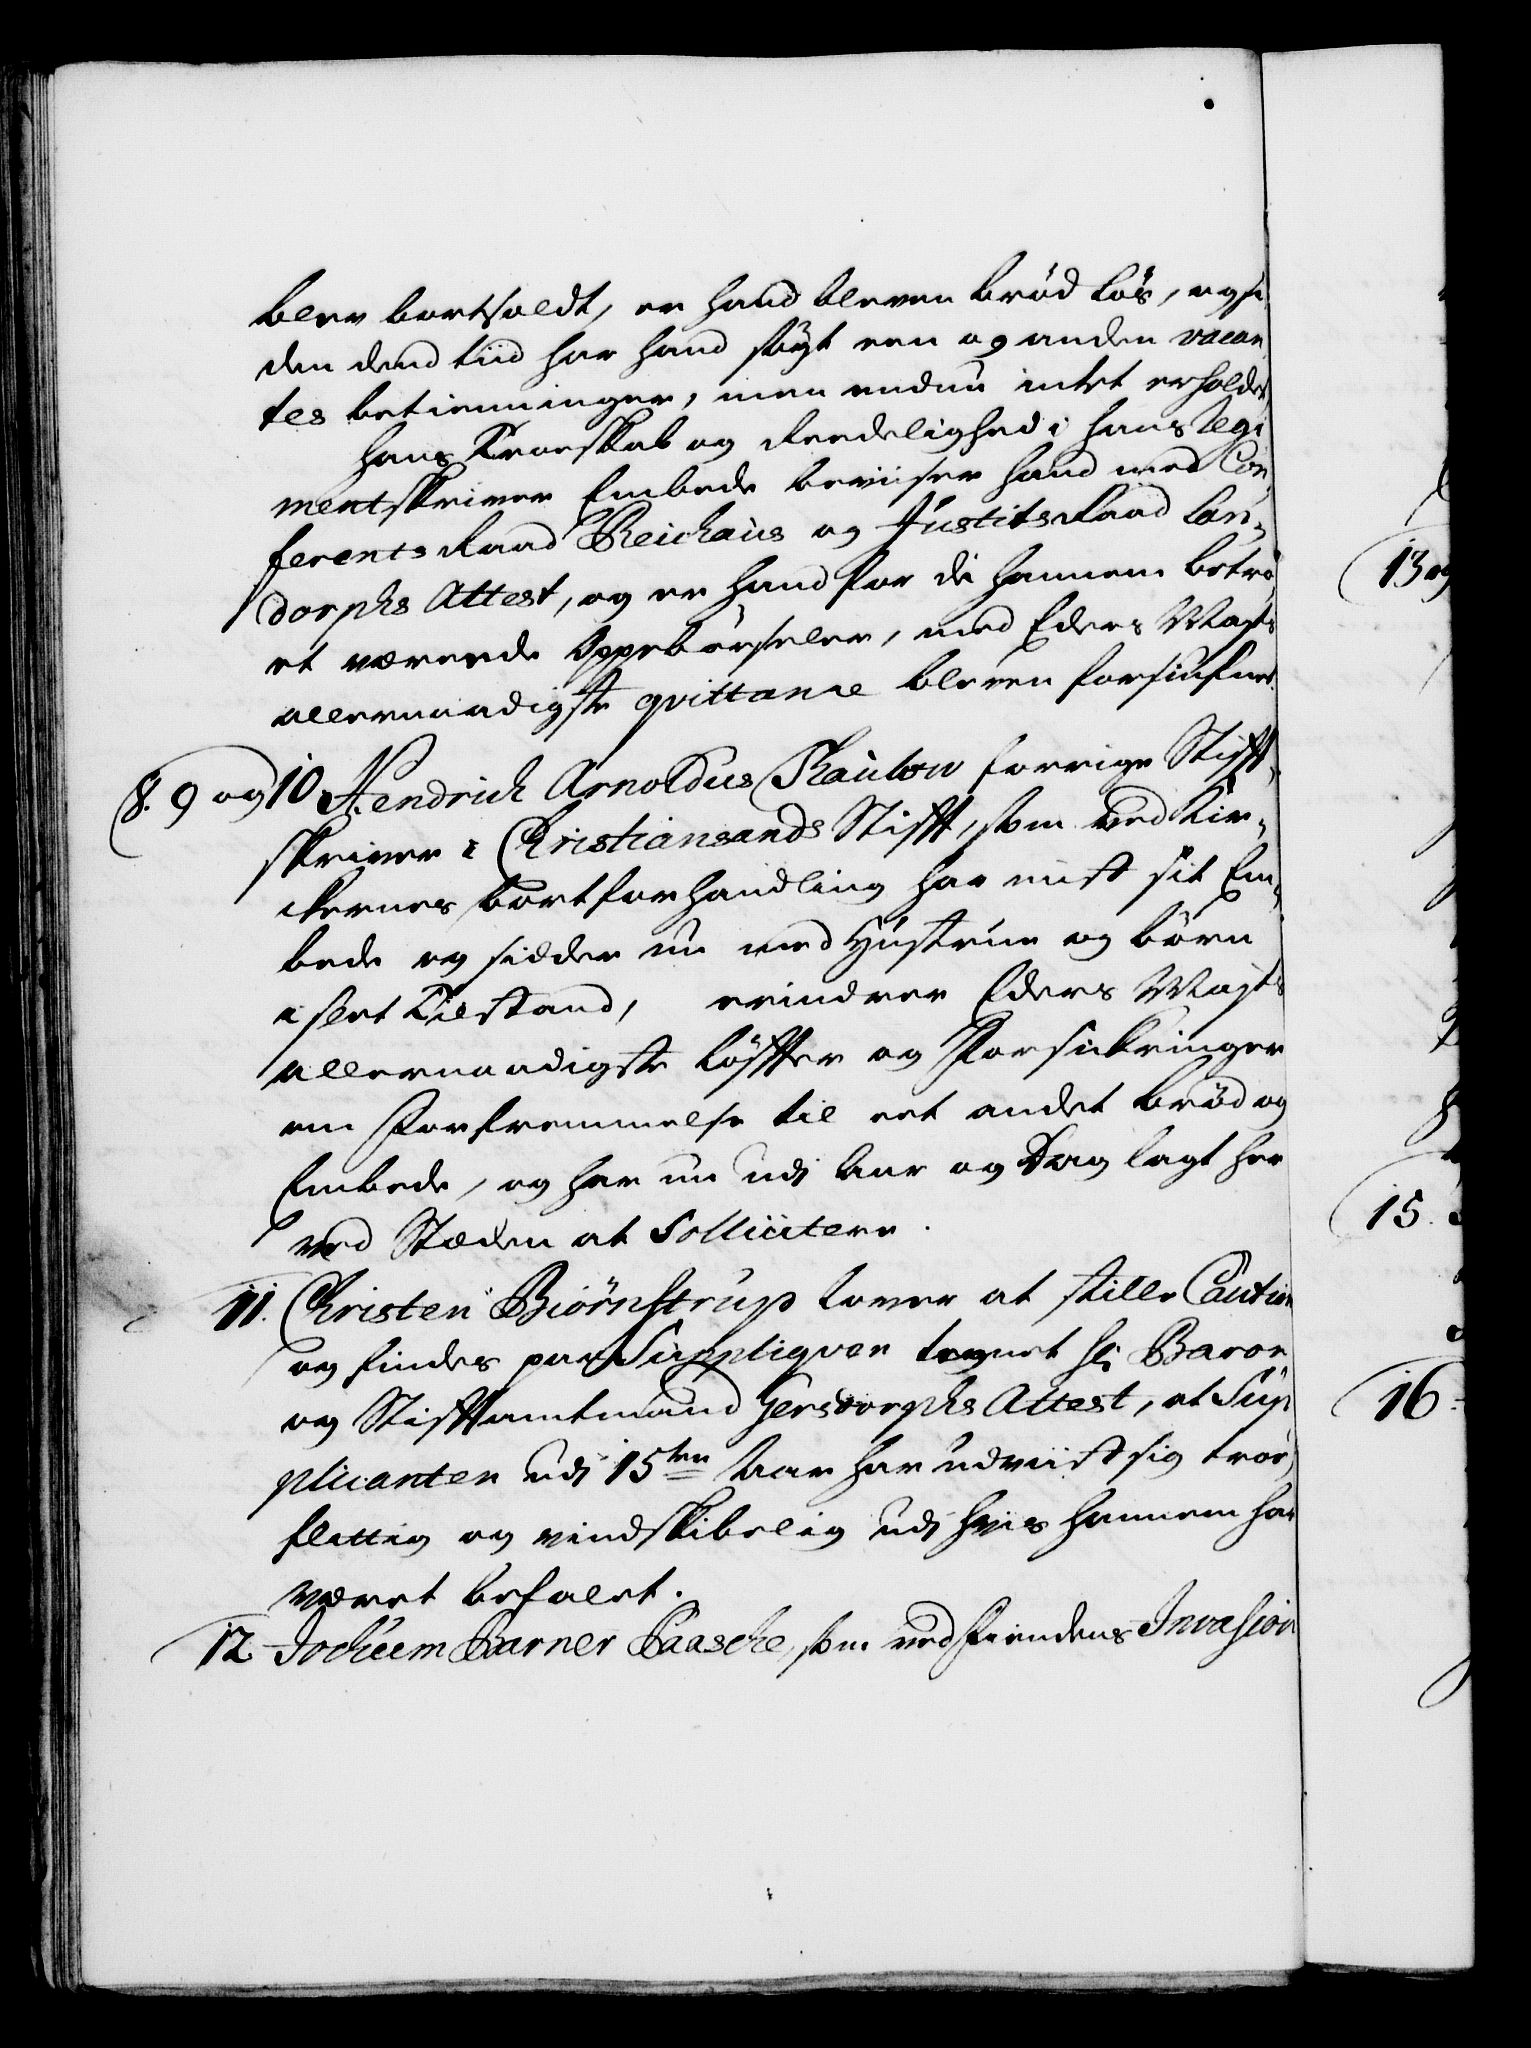 blev bortsoldt, er hand bleven brød løs, og si
den dend tiid har hand søgt een og anden vacan
tes betienninger, men endnu intet erholdet
hans Troeskab og Reedelighed i hans Regi
mentskriver Embede beviiser hand med Con
ferents Raad Reichaus og Justits Raad
dorphs Attest, og er hand for de hannem betro
et værende Oppebørseler, med Eders Mayts
allernaadigste qvittance bleven forsiufnet.
8. 9 og 10 Hendrich Arnoldus Thaulow forrige Stifft
skriver i Christiansands Stifft, som ved Kir„
ckernes bortforhandling har mist sit Em„
bede og sidder nu med Hustrue og børn
i slet Tilstand, erindrer Eders Mayts
allernaadigste Løffter og Forsickringer
om Forfremmelse til et andet brød og
Embede, og har nu udj Aar og Dag lagt her
ved Stæden at Sollicitere.
11. Christen Biørnstrup lover at stille Caution
og findes paa Suppliqven tegnet Hr Baron
og Stifftamtmand Gersdorphs Attest, at Sup
plicanten udj 15ten Aar har udviist sig troe,
flittig og vindskibelig udj hvis hannem har
været befalet.
12. Jochum Barner Paasche, som ved Fiendens Invasion
13 og
15.
16